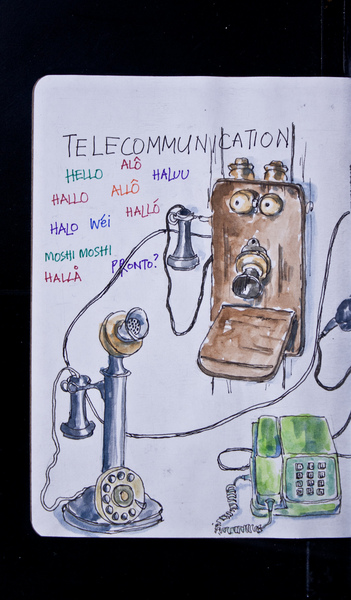 TELECOMMUNICATION
HELLO ALÔ HALUU
HALLO ALLÔ
HALLÓ
HALO Wéi
MOSHI MOSHI
PRONTO?
HALLÅ